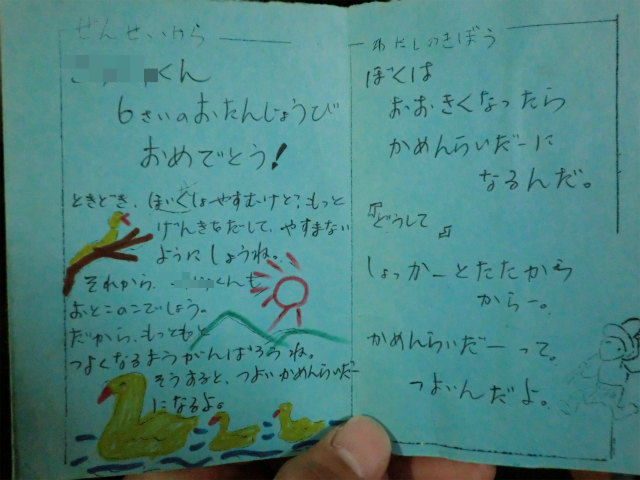 せんせいから
くん
6さいのおたんじょうび
おめでとう!
ときどき、ほいくしょやすむけど、もっと
げんきをだして、やすまない
ようにしようね。
それから、くんも
おとこのこでしょう。
だから、もっともっと
つよくなるようがんばろうね。
そうすると、つよいかめんらいだー
になるよ。
わたしのきぼう
ぼくは
おおきくなったら
かめんらいだーに
なるんだ。
どうして
しょっかーとたたかう
からー。
かめんらいだーって。
つよいんだよ。